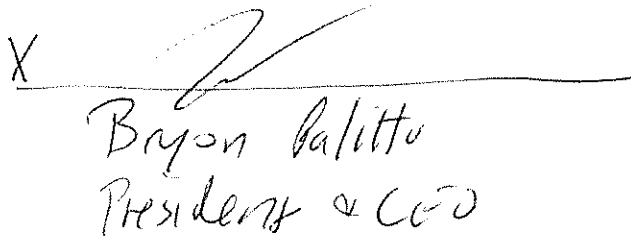 X
Bryon Palitto
President & CEO